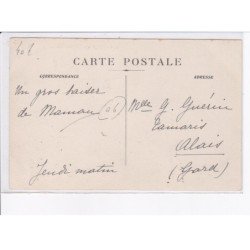 40 f
CARTE POSTALE
CORRESPONDANCE
ADRESSE
Un gros baiser
de Maman
Jeudi matin
Melle G. Guérin
Tamaris
Alais
(Gard)